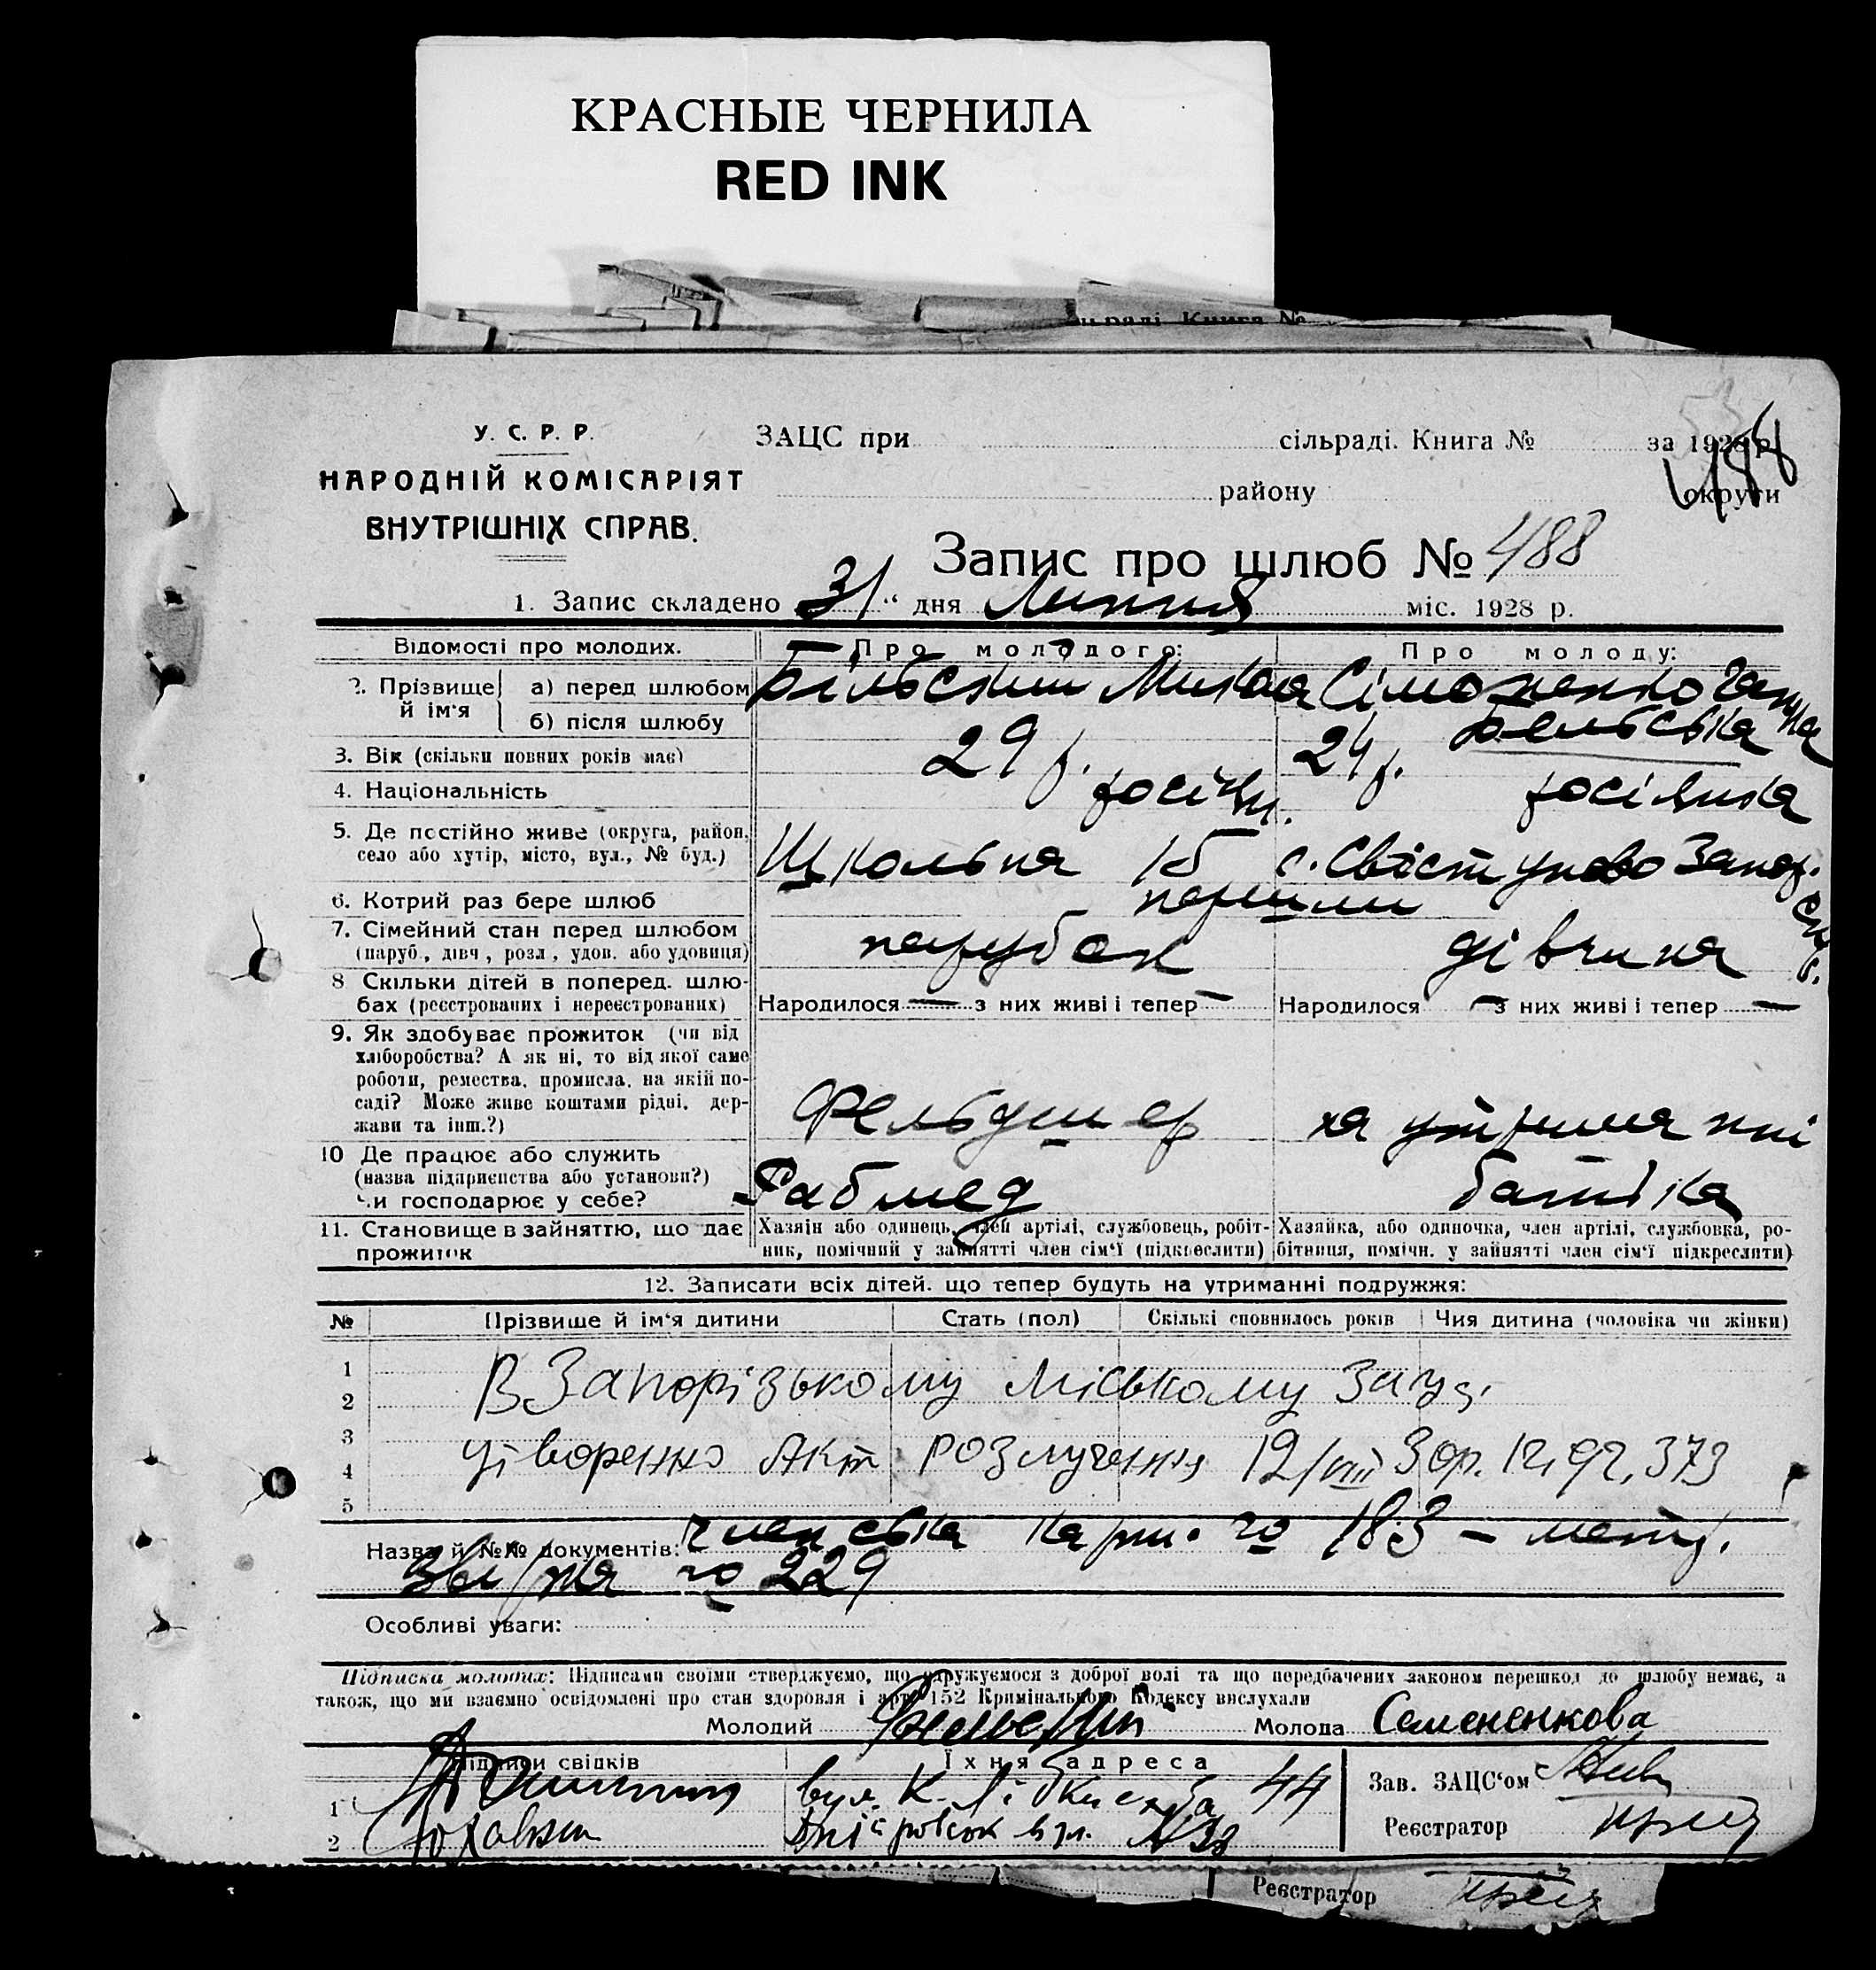 КРАСНЫЕ ЧЕРНИЛА
RED INK
сільраді. Книга №
У. С. Р. Р.
НАРОДНІЙ КОМІСАРІЯТ
ВНУТРІШНІХ СПРАВ.
ЗАЦС при сільраді. Книга № за 1928 р.
району округи
488
Запис про шлюб № 488
1. Запис складено 31 “ дня Липня міс. 1928 р.
Відомості про молодих. Про молодого: Про молоду:
2. Прізвище й ім'я а) перед шлюбом Більський Микола Сімоненко Ганна
б) після шлюбу Бельська
3. Вік (скільки повних років має) 29 р. 24 р.
4. Національність росіян. росіянка
5. Де постійно живе (округа, район, село або хутір, місто, вул., № буд.) Школьна 15 с. Свістуново Запор.
6. Котрий раз бере шлюб перший
7. Сімейний стан перед шлюбом (паруб., дівч., розл., удов. або удовиця) парубок дівчина
8 Скільки дітей в поперед. шлюбах (реєстрованих і нереєстрованих) Народилося — з них живі і тепер — Народилося — з них живі і тепер —
9. Як здобуває прожиток (чи від хліборобства? А як ні, то від якої саме роботи, ремества, промисла, на якій посаді? Може живе коштами рідні, держави та інш.?) Фельдшер на утриманні
10 Де працює або служить (назва підприємства або установи?) Чи господарює у себе? Рабмед батька
11. Становище в зайняттю, що дає прожиток Хазяїн або одинець, член артілі, службовець, робітник, помічний у зайнятті член сім'ї (підкреслити) Хазяйка, або одиночка, член артілі, службовка, робітниця, помічн. у зайнятті член сім'ї підкреслити)
12. Записати всіх дітей, що тепер будуть на утриманні подружжя:
№ Прізвище й ім'я дитини Стать (пол) Скількі сповнилось років Чия дитина (чоловіка чи жінки)
1
В Запорізькому Міському Загсі
2
3
утворенно Акт розлучення 12/VIII 30р.
4
5
Назва й №№ документів: членська карт. № 183 — метр.
№ 229
Особливі уваги:
Підписка молодих: Підписами своїми стверджуємо, що одружуємося з доброї волі та що передбачених законом перешкод до шлюбу немає, а
також, що ми взаємно освідомлені про стан здоровля і арт. 152 Кримінального Кодексу вислухали
Молодий Молода Семененкова
Підписи свідків Їхня адреса Зав. ЗАЦС'ом
1 вул. К. Лібкнехта 44
2 Реєстратор
Реєстратор